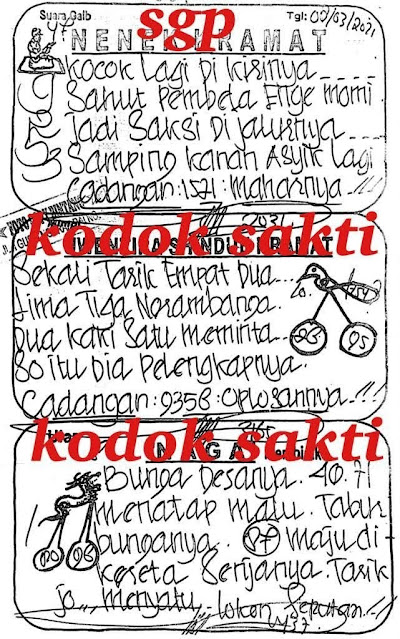 sgp
Suara Gaib
Tgl: 05/03/2021
47
NENEK KRAMAT
Kocok Lagi Di Kirinya
9
Sahut Pembela Enge momi
5
Jadi Saksi Di Jalurnya
3
Samping Kanan Asyik Lagi
Cadangan: 1571: maharnya
2031
kodok sakti
KRAMAT
Sekali Tarik Empat Dua
Lima Tiga Norambanga.
Dua Kaki Satu meminta
80 itu Dia Pelengkapnya.
05
Cadangan: 9358: Oplosannya
kodok sakti
NAGA
Bunga Desanya. 40.71
menatap malu. Tabur
bunganya. maju di-
kereta Serijanya. Tarik
jo,, menyatu,, Lokon Seputan